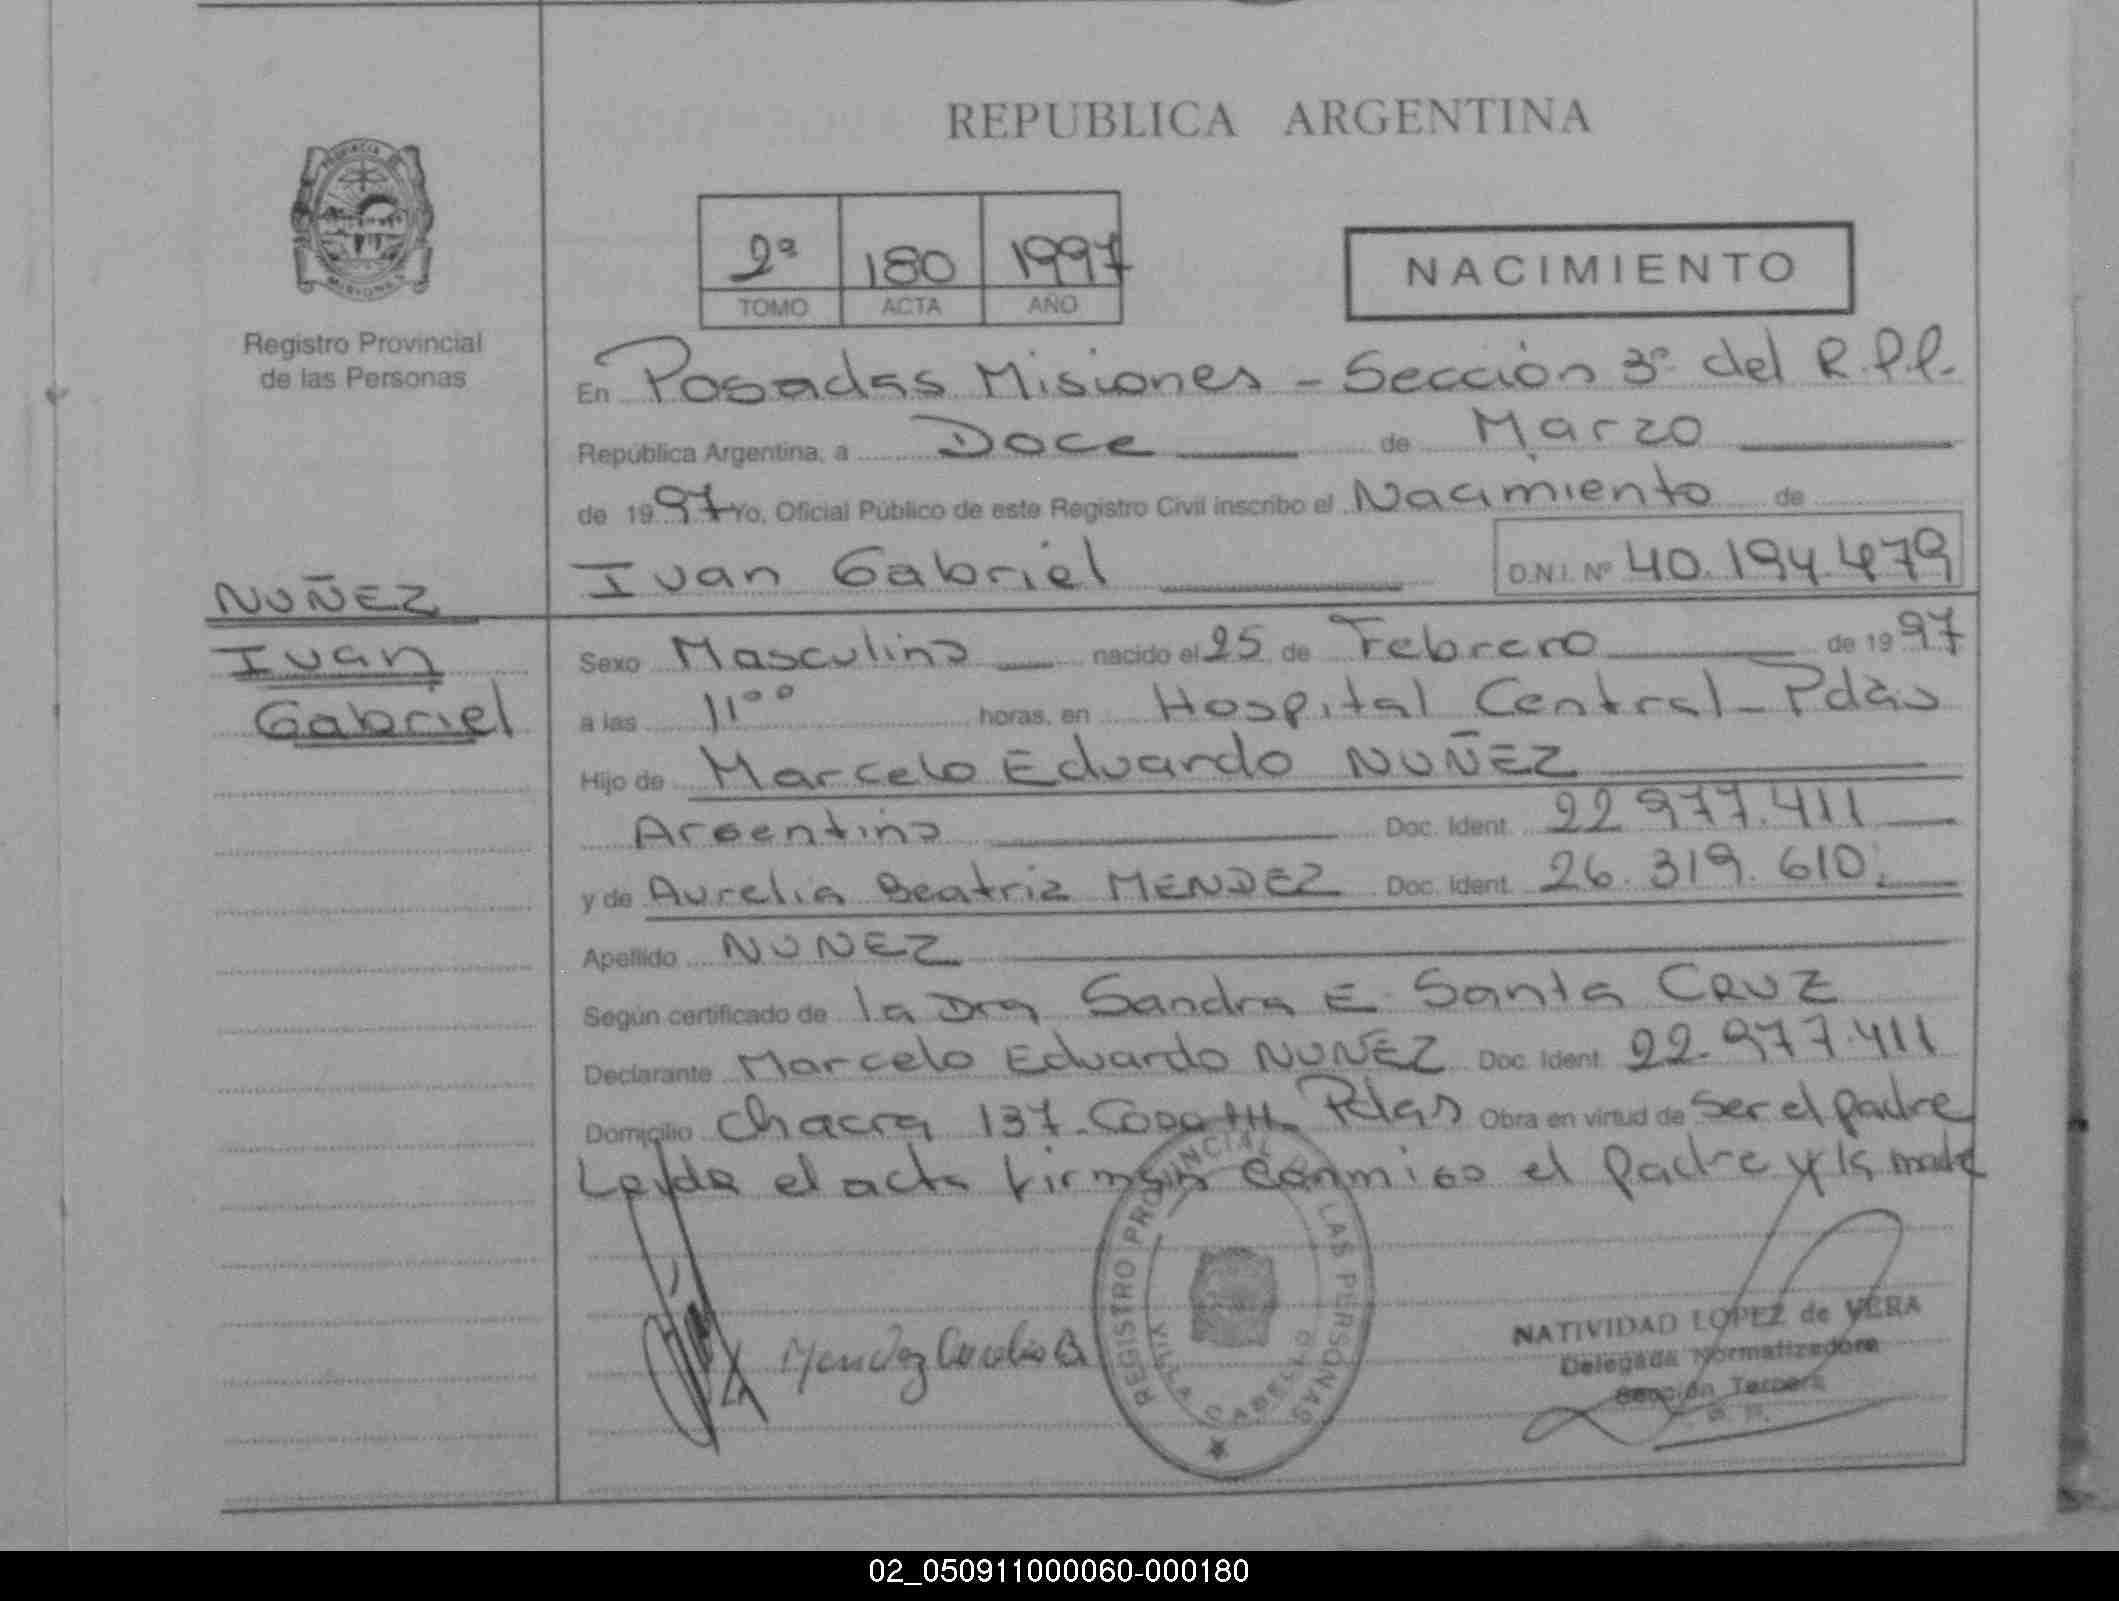 REPUBLICA ARGENTINA
PROVINCIA DE
MISIONES
Registro Provincial
de las Personas
2ª 180 1997
TOMO ACTA AÑO
NACIMIENTO
En Posadas Misiones - Sección 3ª del R.P.P.
República Argentina, a Doce de Marzo
de 1997 Yo, Oficial Público de este Registro Civil inscribo el Nacimiento de
Ivan Gabriel D.N.I. Nº 40.194.479
NUÑEZ
Ivan
Gabriel
Sexo Masculino nacido el 25 de Febrero de 1997
a las 11°° horas, en Hospital Central - Pdas
Hijo de Marcelo Eduardo NUÑEZ
Argentino Doc. Ident. 22.977.411
y de Aurelia Beatriz MENDEZ Doc. Ident. 26.319.610.
Apellido NUNEZ
Según certificado de la Dra Sandra E. Santa CRUZ
Declarante Marcelo Eduardo NUÑEZ Doc. Ident. 22.977.411
Domicilio Chacra 137 - Pdas Obra en virtud de Ser el padre
Leyda el acta firman conmigo el padre y la madre
Mendez Aurelia B
REGISTRO PROVINCIAL DE LAS PERSONAS
VILLA CABELLO
NATIVIDAD LOPEZ de VERA
Delegada Normatizadora
Sección Tercera
02_050911000060-000180